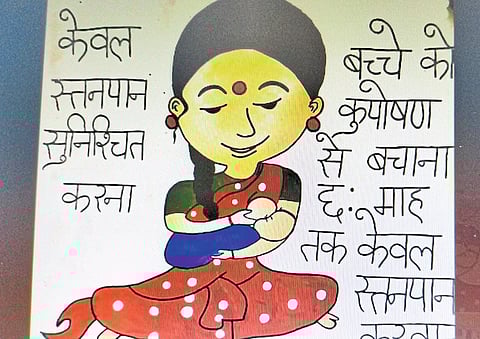 केवल
स्तनपान
सुनिश्चित
करना
बच्चे को
कुपोषण
से बचाना
छ: माह
तक केवल
स्तनपान
करना